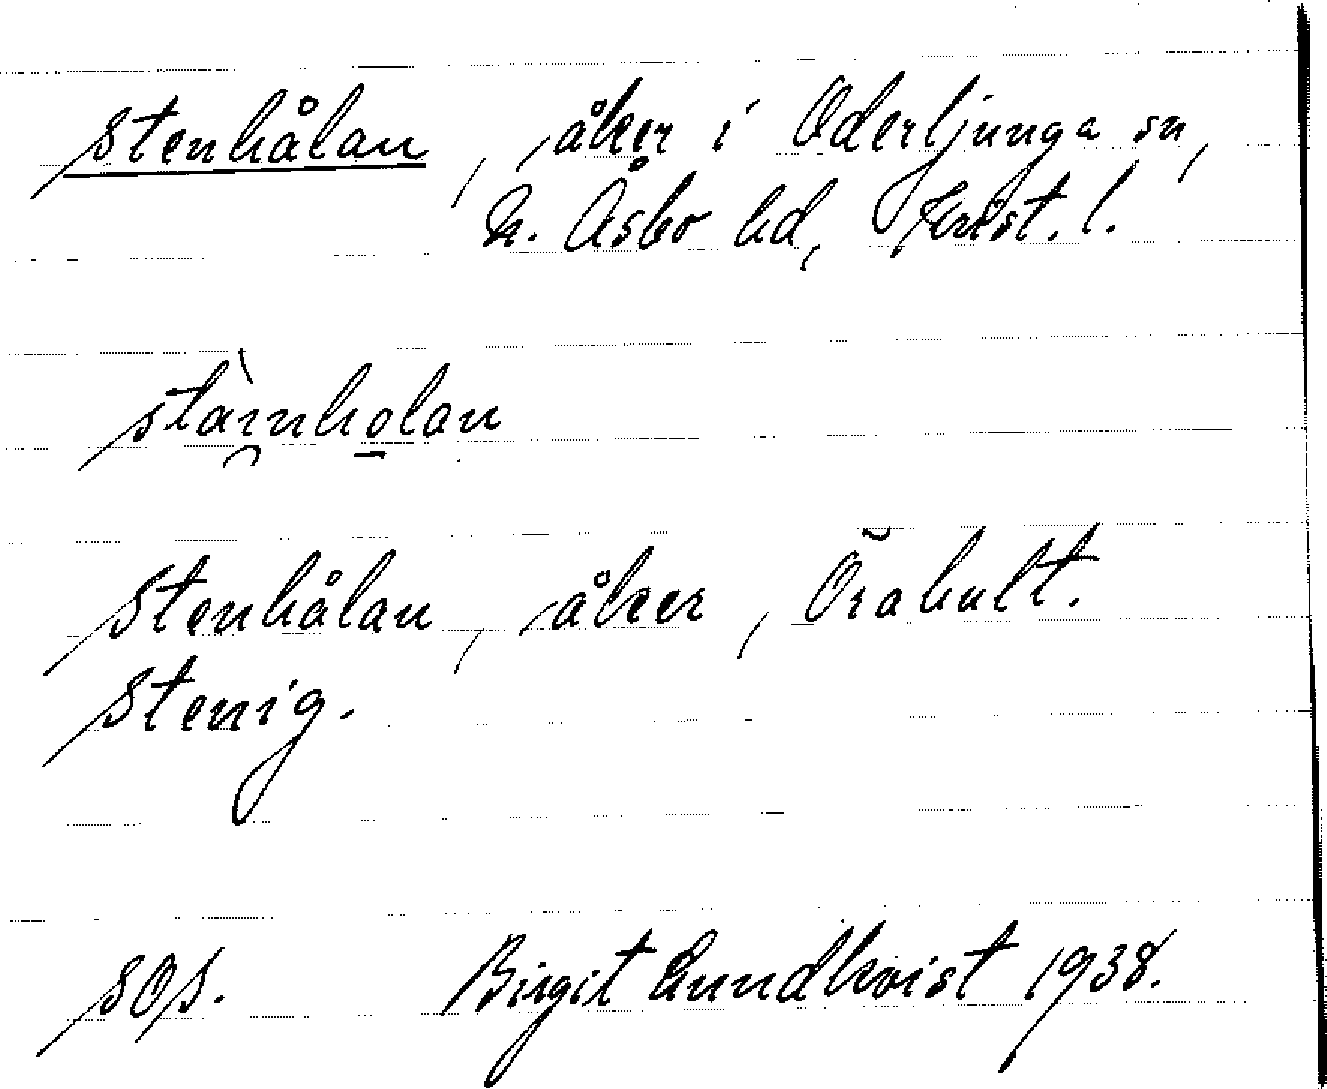 Stenhålan, åker i Oderljunga sn,
N. Åsbo hd, Krist. l.
stàinholan
Stenhålan, åker, Örahult.
Stenig.
SOS. Birgit Lundkvist 1938.